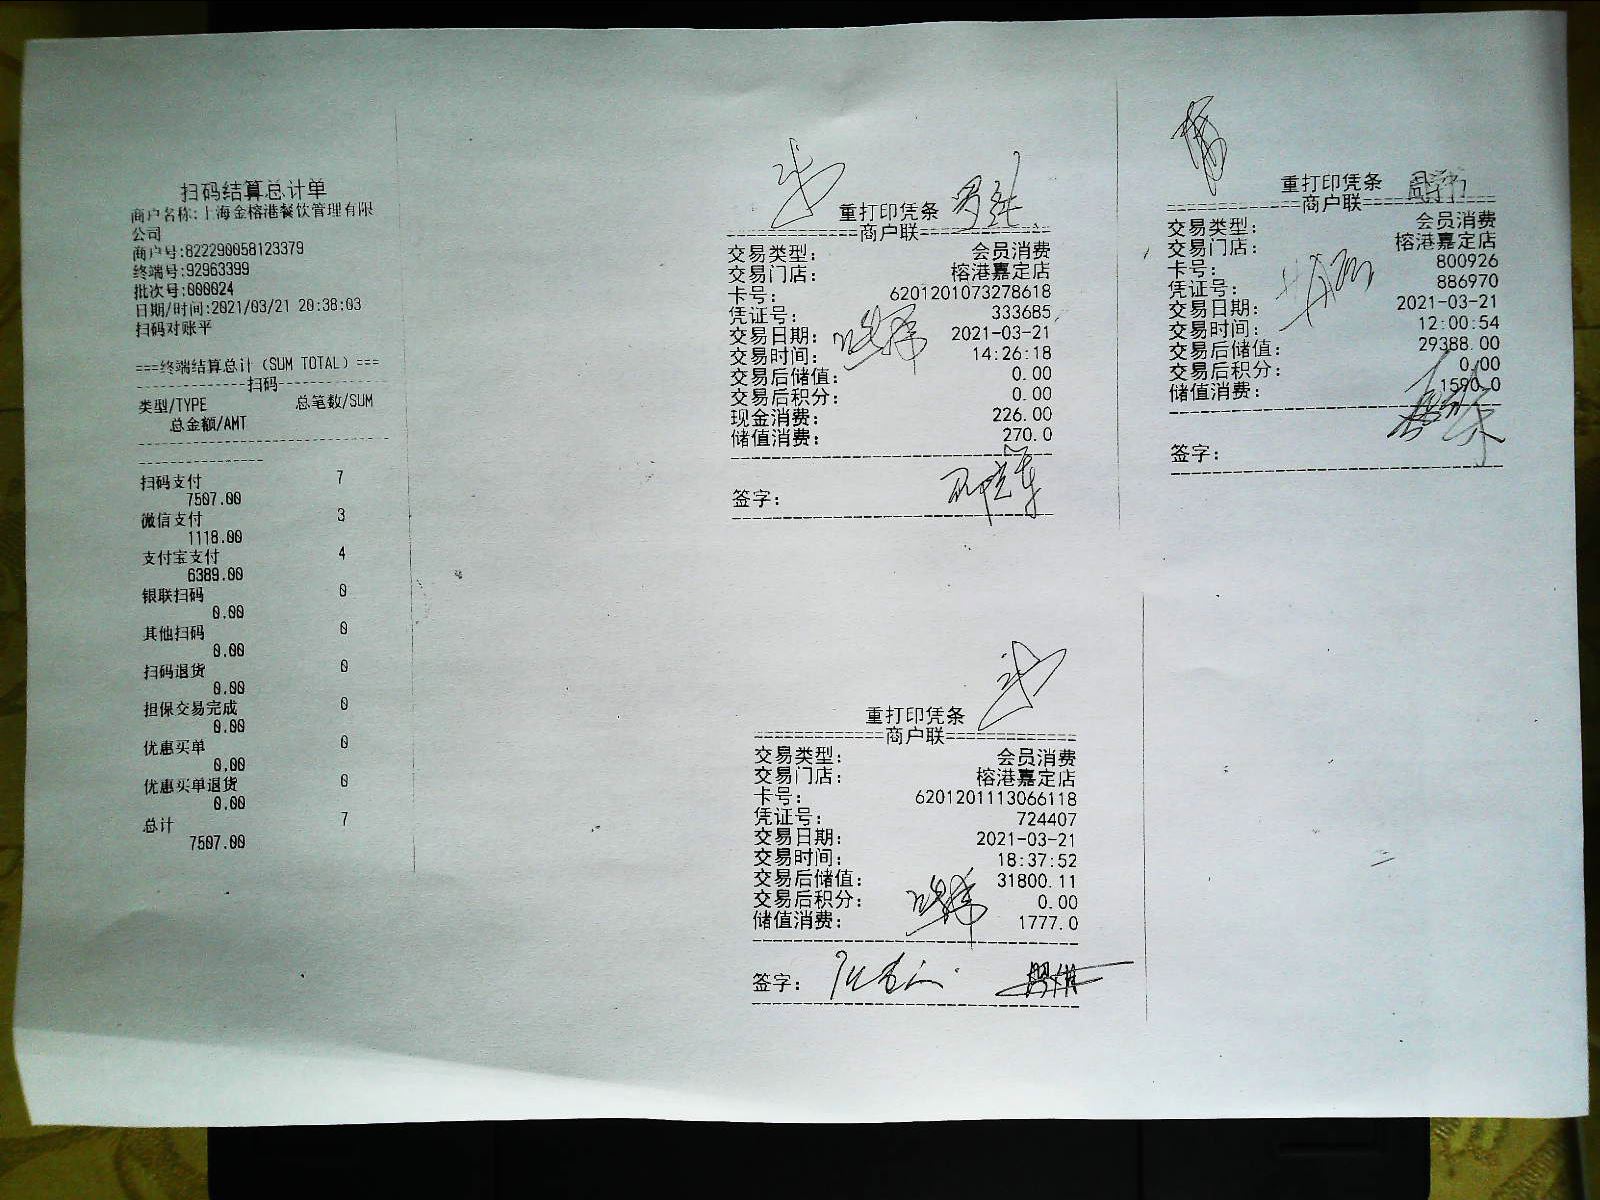 扫码结算总计单
商户名称:上海金榕港餐饮管理有限
公司
商户号:822290058123379
终端号:92963399
批次号:000024
日期/时间:2021/03/21 20:38:03
扫码对账平
===终端结算总计 (SUM TOTAL) ===
--------------扫码--------------
类型/TYPE 总笔数/SUM
总金额/AMT
扫码支付 7
7507.00
微信支付 3
1118.00
支付宝支付 4
6389.00
银联扫码 0
0.00
其他扫码 0
0.00
扫码退货 0
0.00
担保交易完成 0
0.00
优惠买单 0
0.00
优惠买单退货 0
0.00
总计 7
7507.00
重打印凭条
=============商户联=============
交易类型: 会员消费
交易门店: 榕港嘉定店
卡号: 6201201073278618
凭证号: 333685
交易日期: 2021-03-21
交易时间: 14:26:18
交易后储值: 0.00
交易后积分: 0.00
现金消费: 226.00
储值消费: 270.0
签字:
重打印凭条
=============商户联=============
交易类型: 会员消费
交易门店: 榕港嘉定店
卡号: 800926
凭证号: 886970
交易日期: 2021-03-21
交易时间: 12:00:54
交易后储值: 29388.00
交易后积分: 0.00
储值消费: 1590.0
签字:
重打印凭条
=============商户联=============
交易类型: 会员消费
交易门店: 榕港嘉定店
卡号: 6201201113066118
凭证号: 724407
交易日期: 2021-03-21
交易时间: 18:37:52
交易后储值: 31800.11
交易后积分: 0.00
储值消费: 1777.0
签字: